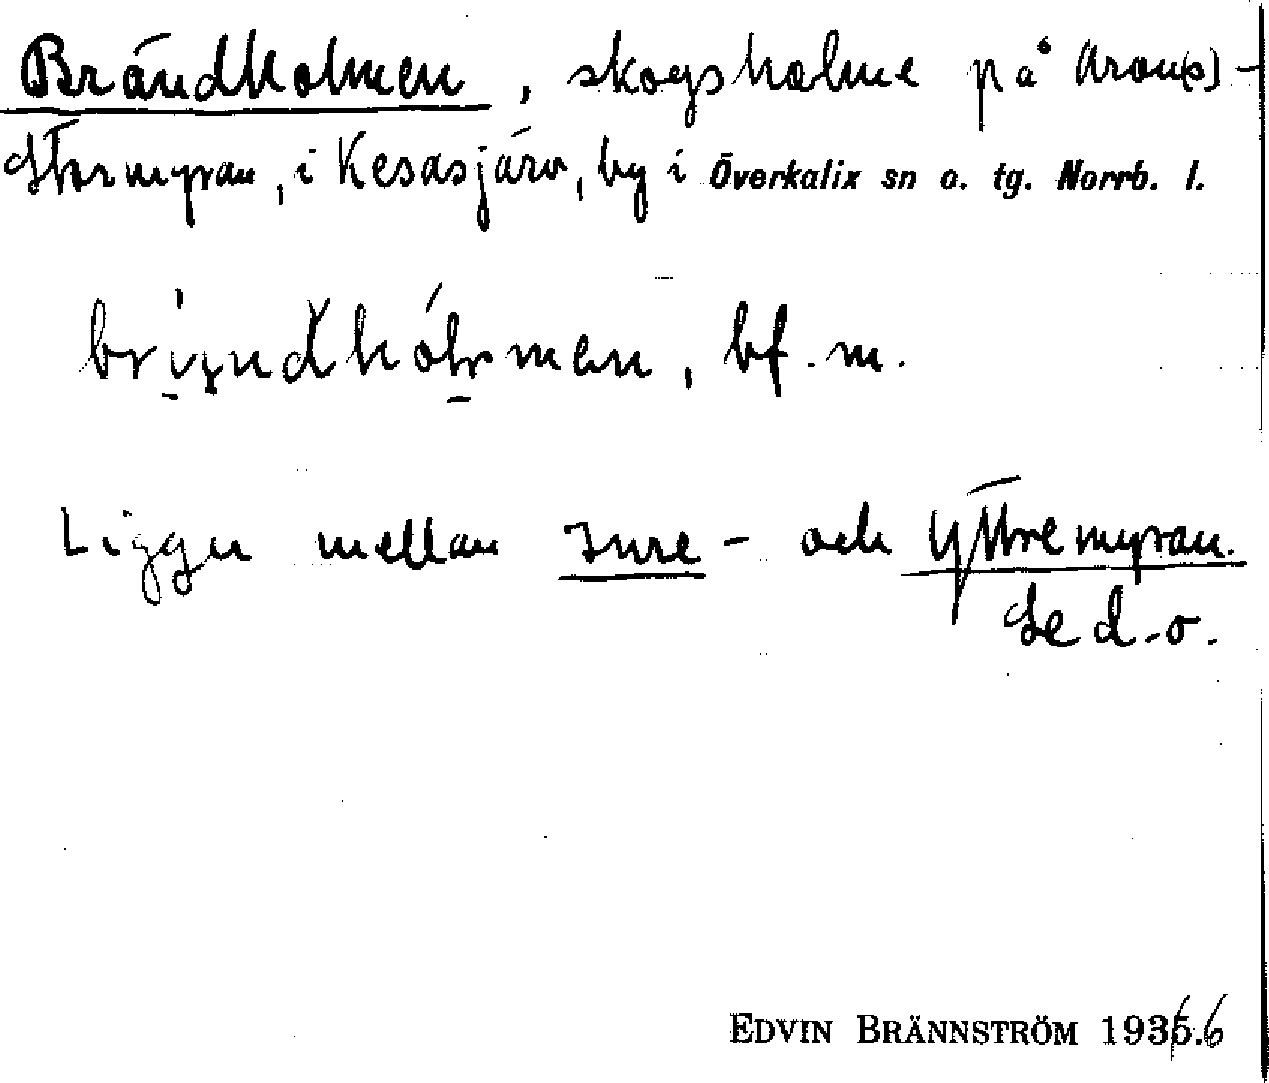 Brändholmen, skogsholme på Aron(s)-
Stormyran, i Kesasjärv, by i Överkalix sn o. tg. Norrb. l.
bf. m.
Ligger mellan Inre- och Yttremyran.
Se d.o.
EDVIN BRÄNNSTRÖM 1936